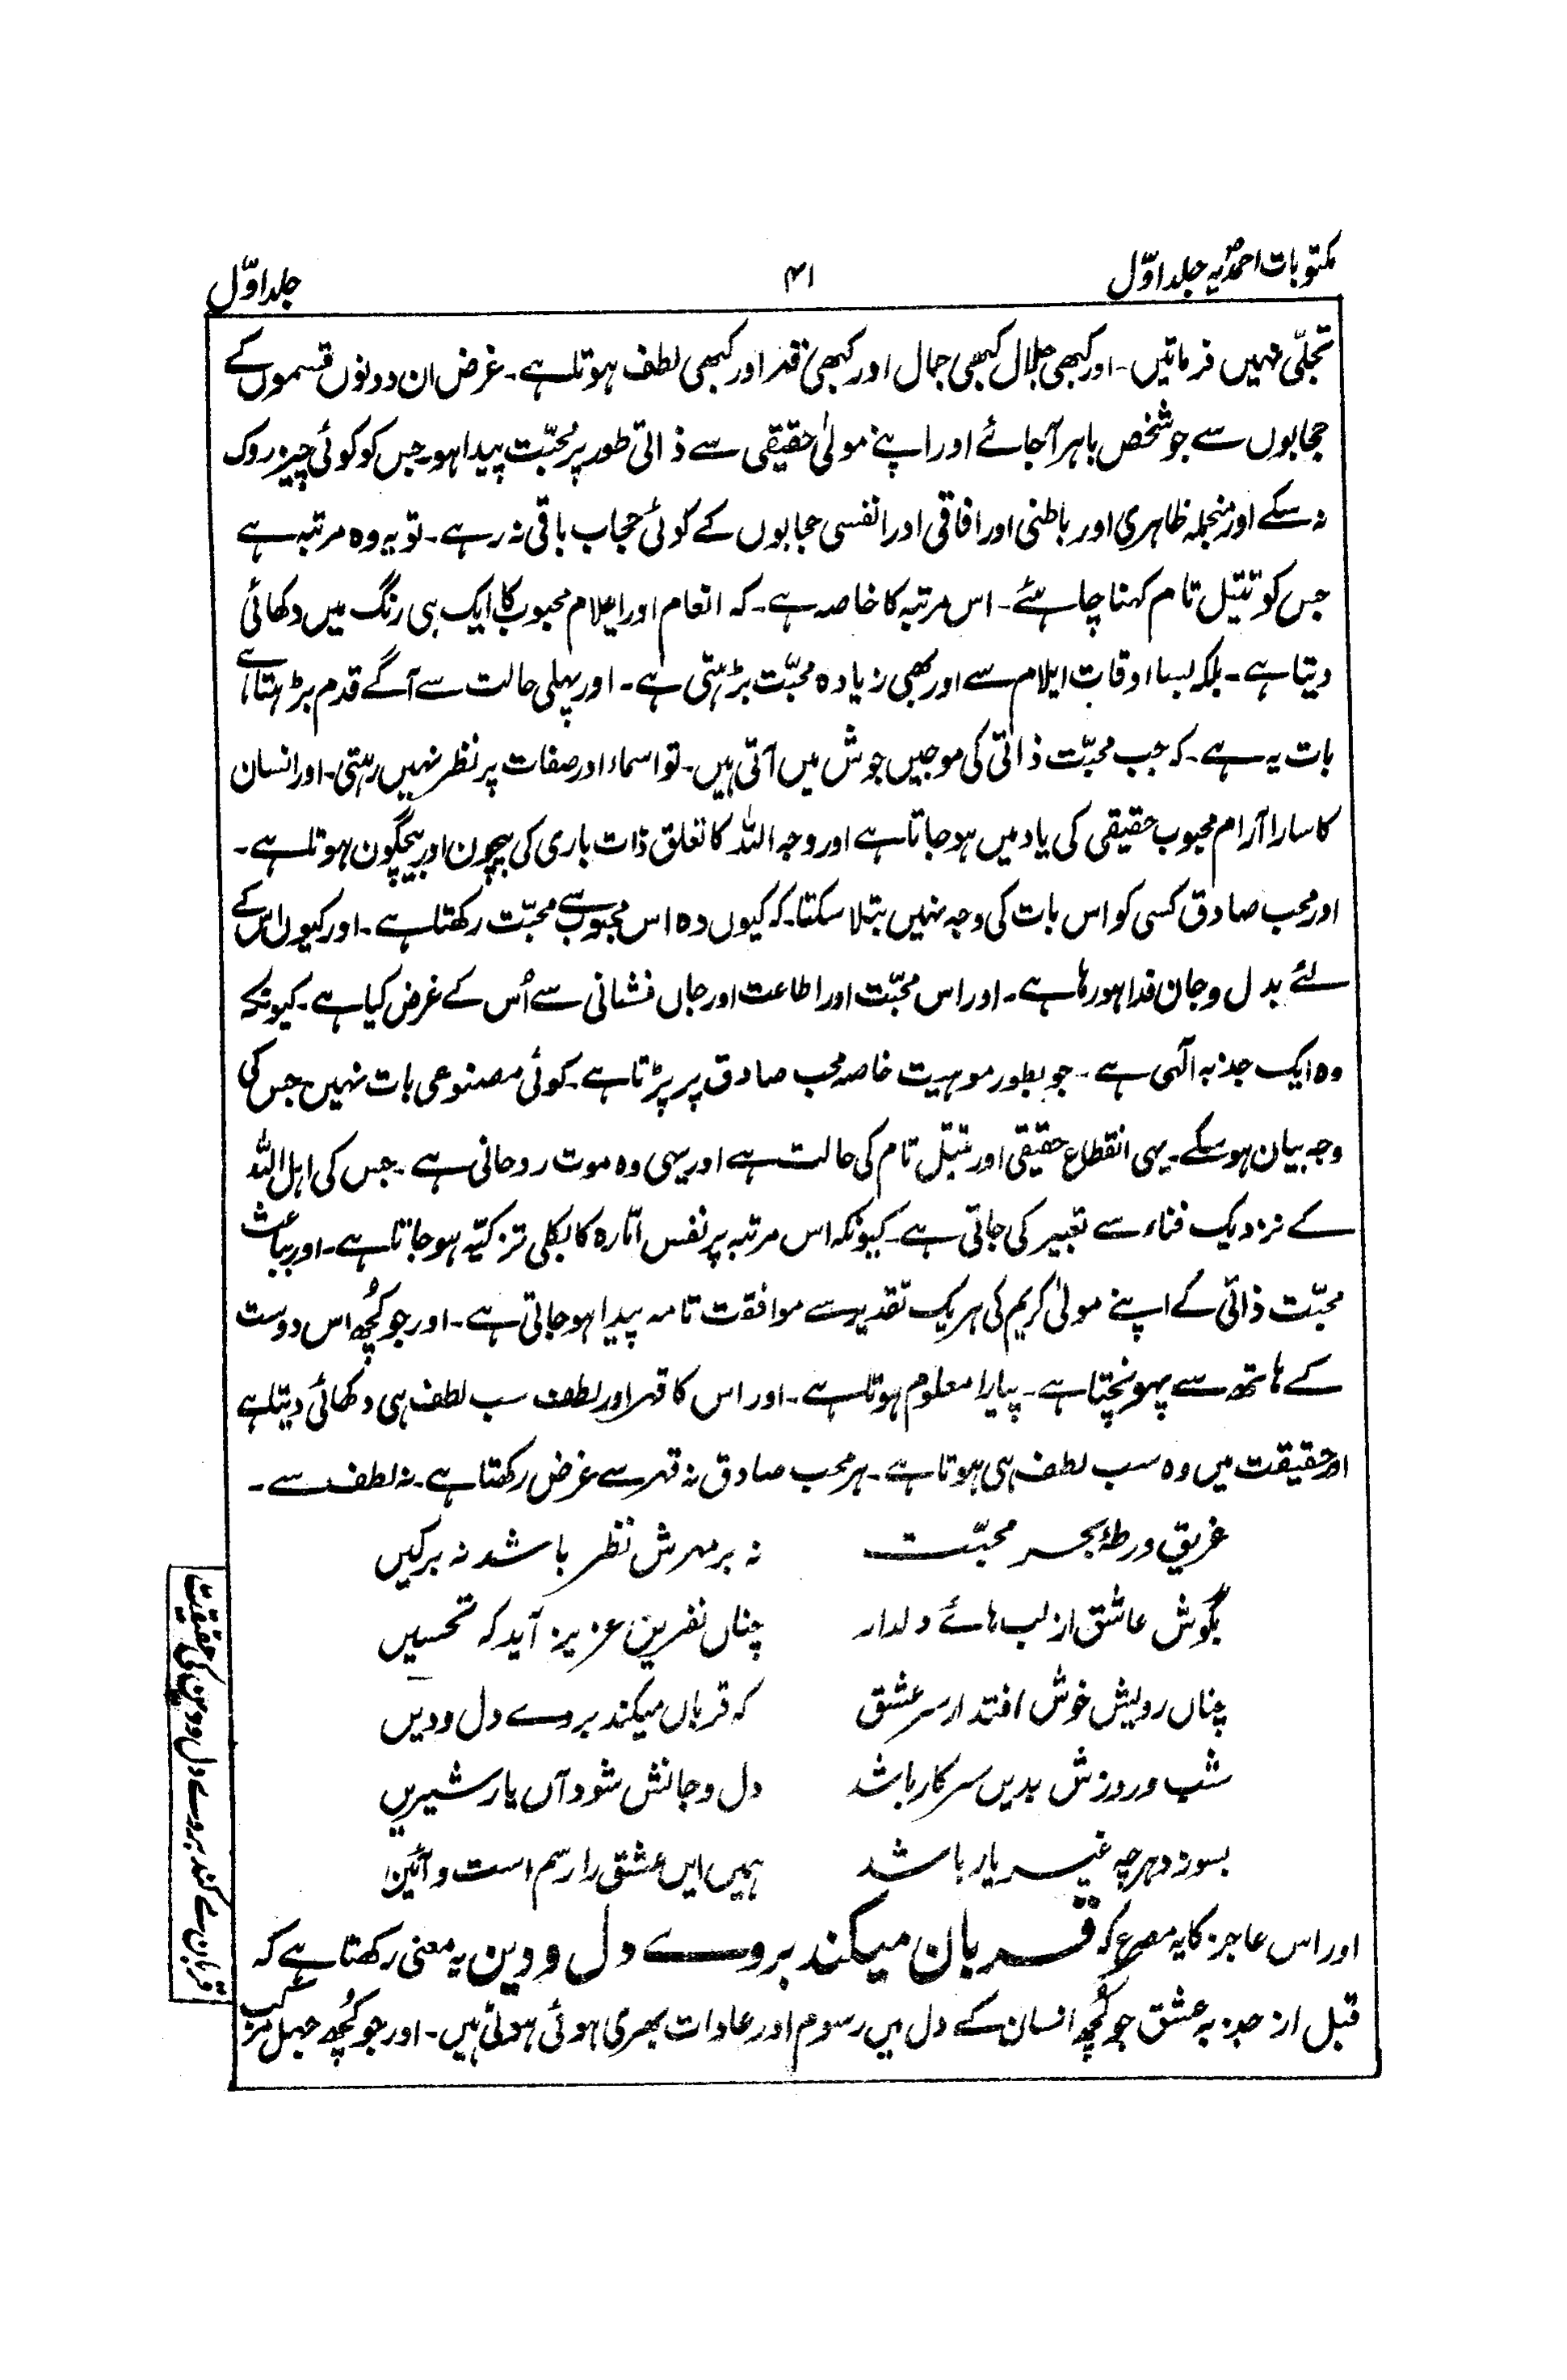 مکتوبات احمدیہ جلد اوّل
۴۱
جلد اوّل
تجلّی نہیں فرماتیں۔ اور کبھی جلال کبھی جمال اور کبھی قدر اور کبھی لطف ہوتا ہے۔ غرض ان دونوں قسموں کے
حجابوں سے جو شخص باہر آ جائے اور اپنے مولیٰ حقیقی سے ذاتی طور پر محبّت پیدا ہو۔ جس کو کوئی چیز روک
نہ سکے اور منجملہ ظاہری اور باطنی اور افاقی اور انفسی حجابوں کے کوئی حجاب باقی نہ رہے۔ تو یہ وہ مرتبہ ہے
جس کو تبتّل تام کہنا چاہئے۔ اس مرتبہ کا خاصہ ہے۔ کہ انعام اور ایلام محبوب کا ایک ہی رنگ میں دکھائی
دیتا ہے۔ بلکہ بسا اوقات ایلام سے اور بھی زیادہ محبّت بڑہتی ہے۔ اور پہلی حالت سے آگے قدم بڑہتا ہے
بات یہ ہے۔ کہ جب محبّت ذاتی کی موجیں جوش میں آتی ہیں۔ تو اسماء اور صفات پر نظر نہیں رہتی۔ اور انسان
کا سارا آرام محبوب حقیقی کی یاد میں ہو جاتا ہے اور وجہ اللہ کا تعلق ذات باری کی بیچون اور بیچگون ہوتا ہے۔
اور محب صادق کسی کو اس بات کی وجہ نہیں بتلا سکتا۔ کہ کیوں وہ اس محبوب سے محبّت رکھتا ہے۔ اور کیوں اس کے
لئے بدل و جان فدا ہو رہا ہے۔ اور اس محبّت اور اطاعت اور جاں فشانی سے اُس کے غرض کیا ہے۔ کیونکہ
وہ ایک جذبہ الٰہی ہے۔ جو بطور موہبت خاصہ محب صادق پر پڑتا ہے۔ کوئی مصنوعی بات نہیں جس کی
وجہ بیان ہو سکے۔ یہی انقطاع حقیقی اور تبتّل تام کی حالت ہے اور یہی وہ موت روحانی ہے۔ جس کی اہل اللہ
کے نزدیک فناء سے تعبیر کی جاتی ہے۔ کیونکہ اس مرتبہ پر نفس امّارہ کا بکلی تزکیّہ ہو جاتا ہے۔ اور بباعث
محبّت ذاتی کے اپنے مولیٰ کریم کی ہریک تقدیر سے موافقت تامہ پیدا ہو جاتی ہے۔ اور جو کُچھ اس دوست
کے ہاتھ سے پہونچتا ہے۔ پیارا معلوم ہوتا ہے۔ اور اس کا قہر اور لطف سب لطف ہی دکھائی دیتا ہے
اور حقیقت میں وہ سب لطف ہی ہوتا ہے۔ ہر محب صادق نہ قہر سے غرض رکھتا ہے۔ نہ لطف سے۔
غریق ورطۂ بحر محبّت نہ بر مہرش نظر باشد نہ بر کیں
بگوش عاشق از لب ہائے دلدار چناں نفرین عزیز آید کہ تحسیں
چناں رویش خوش افتد از سر عشق کہ قرباں میکند بروے دل و دیں
شب و روزش بدیں سرکار باشد دل و جانش شود آں یار شیریں
بسوزد ہرچہ غیر یار باشد ہمیں ایں عشق را رسم است و آئین
اور اس عاجز کا یہ مصرع کہ قربان میکند بروے دل و دین یہ معنی رکھتا ہے کہ
قبل از جذبہ عشق جو کُچھ انسان کے دل میں رسوم اور عادات بھری ہوئی ہوتی ہیں۔ اور جو کُچھ جہل مرکب
قربان مے کند بروے دل و دین کی حقیقت